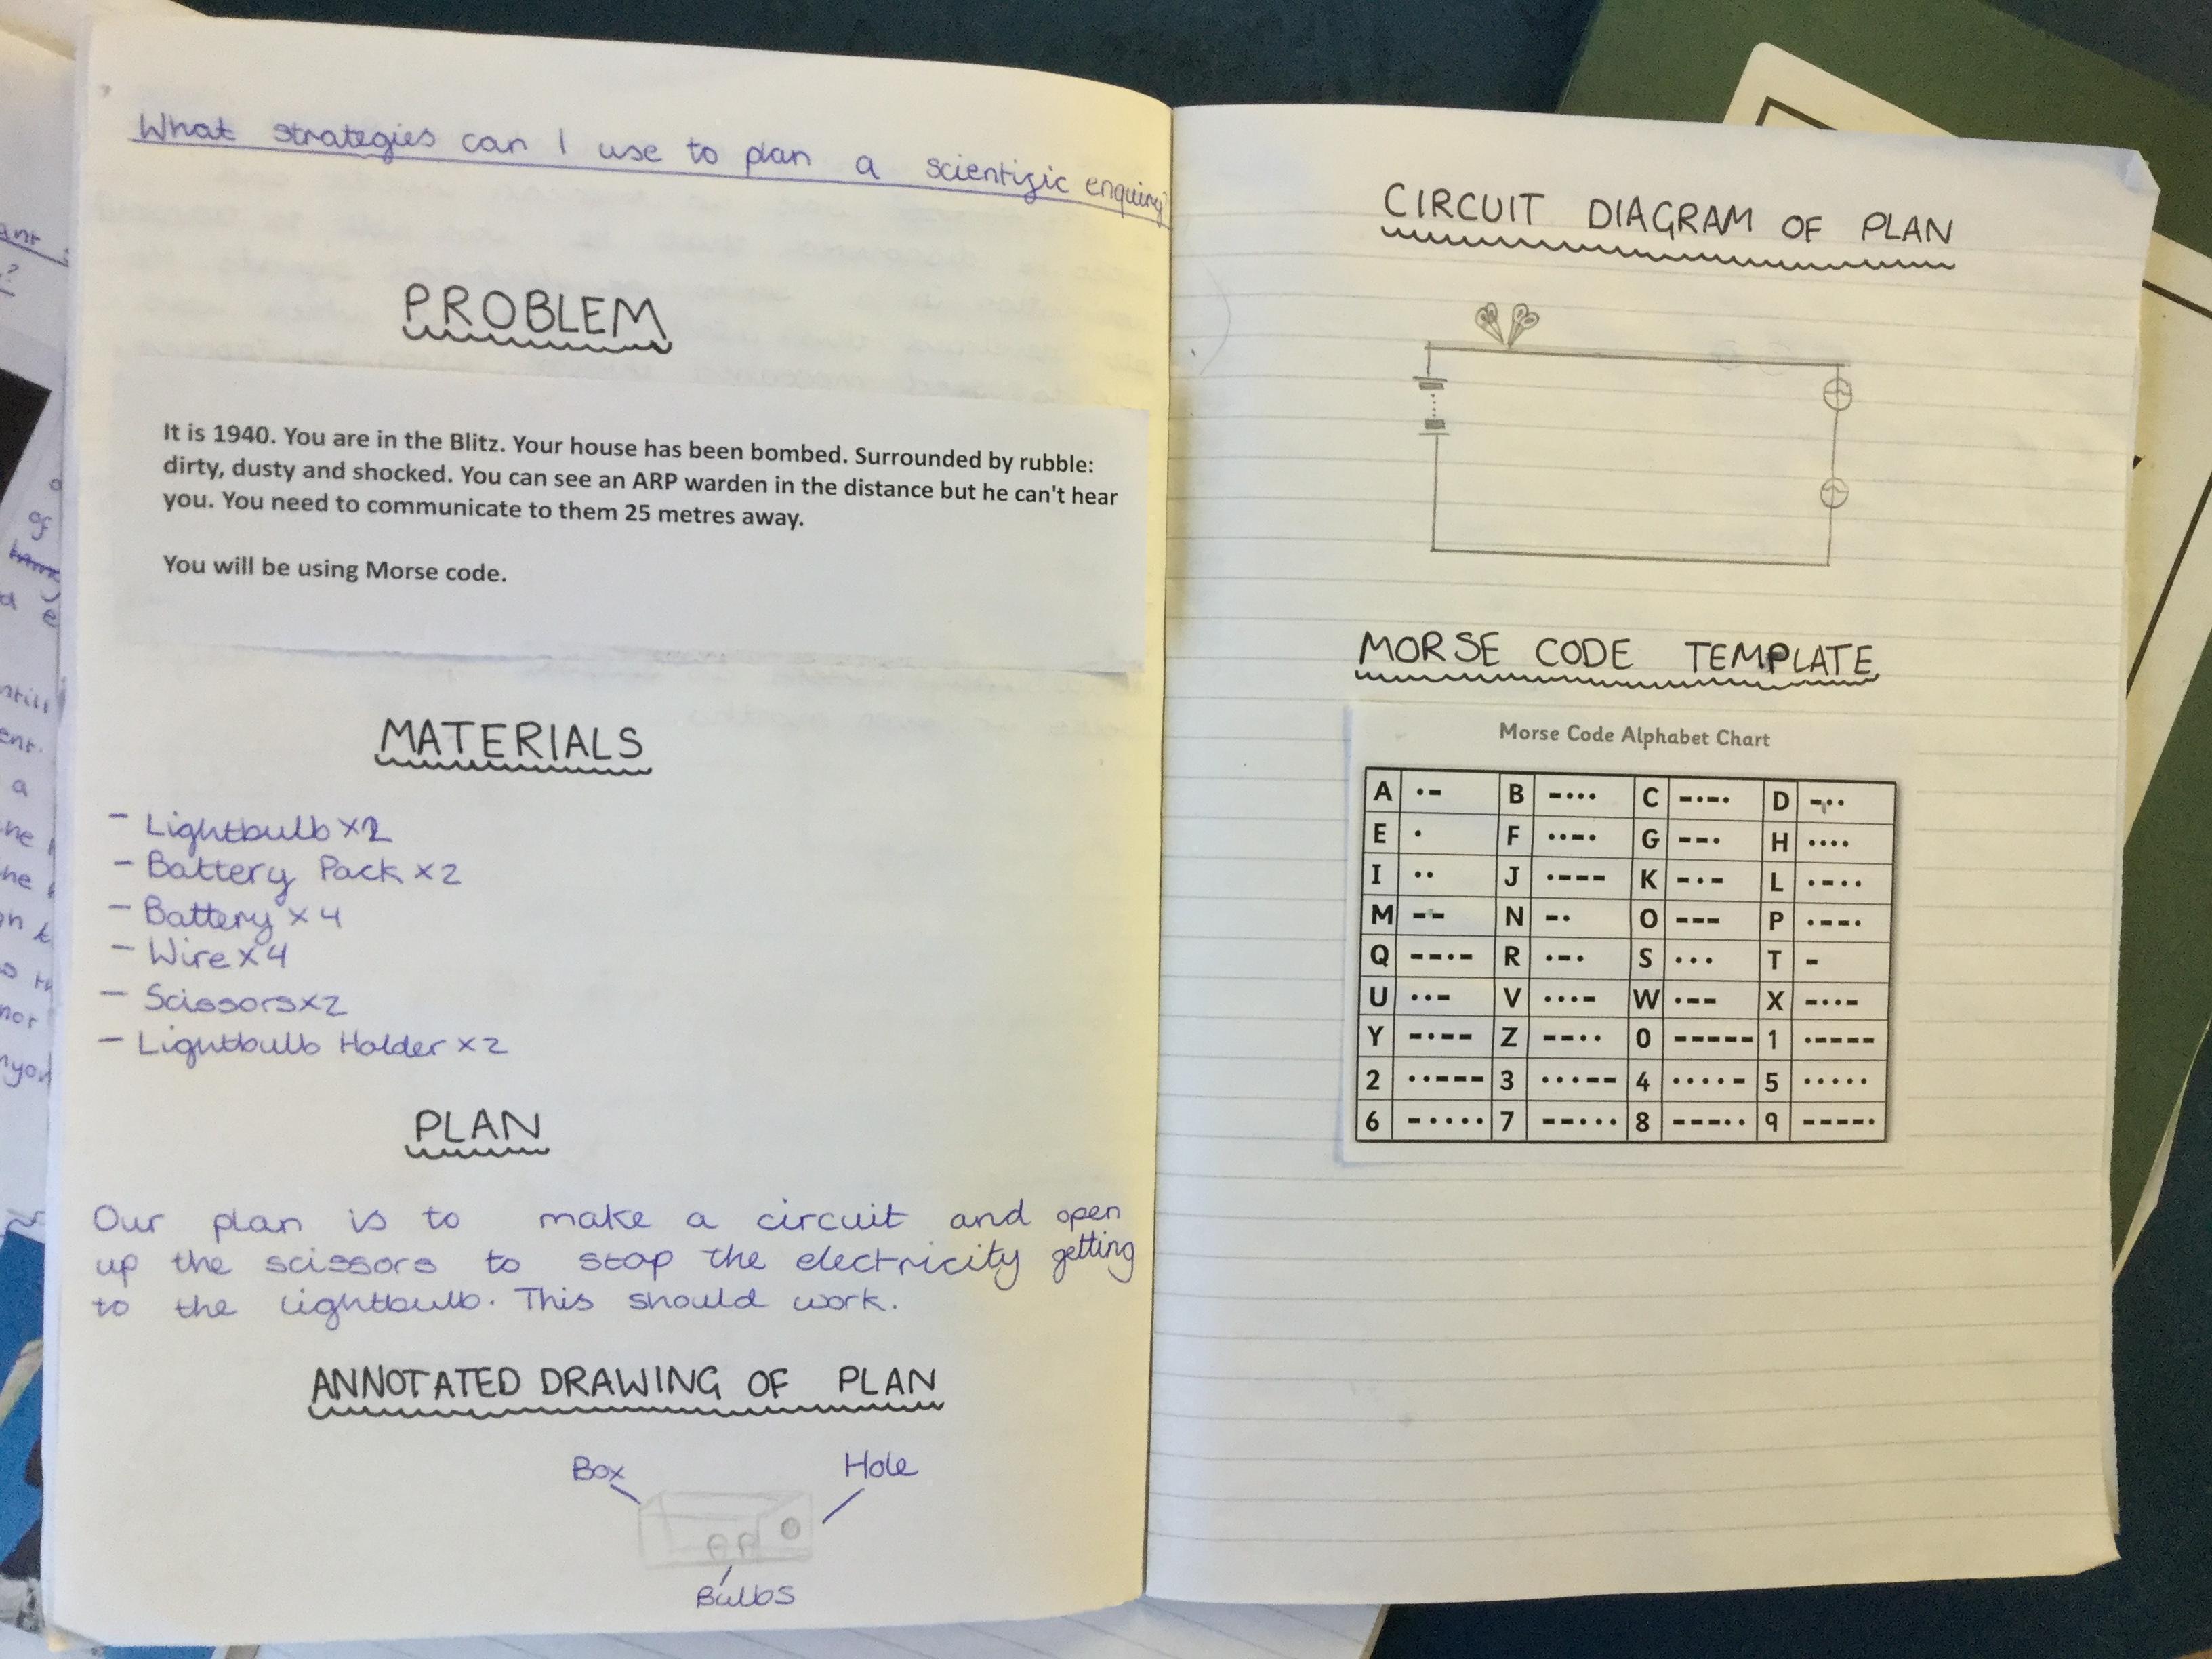 What strategies can I use to plan a scientific enquiry?
PROBLEM
It is 1940. You are in the Blitz. Your house has been bombed. Surrounded by rubble:
dirty, dusty and shocked. You can see an ARP warden in the distance but he can't hear
you. You need to communicate to them 25 metres away.
You will be using Morse code.
MATERIALS
- Lightbulb x2
- Battery Pack x2
- Battery x4
- Wire x4
- Scissors x2
- Lightbulb Holder x2
PLAN
Our plan is to make a circuit and open
up the scissors to stop the electricity getting
to the lightbulb. This should work.
ANNOTATED DRAWING OF PLAN
Box
Hole
Bulbs
CIRCUIT DIAGRAM OF PLAN
MORSE CODE TEMPLATE
Morse Code Alphabet Chart
A •– B –••• C –•–• D –••
E • F ••–• G ––• H ••••
I •• J •––– K –•– L •–••
M –– N –• O ––– P •––•
Q ––•– R •–• S ••• T –
U ••– V •••– W •–– X –••–
Y –•–– Z ––•• 0 ––––– 1 •––––
2 ••––– 3 •••–– 4 ••••– 5 •••••
6 –•••• 7 ––••• 8 –––•• 9 ––––•